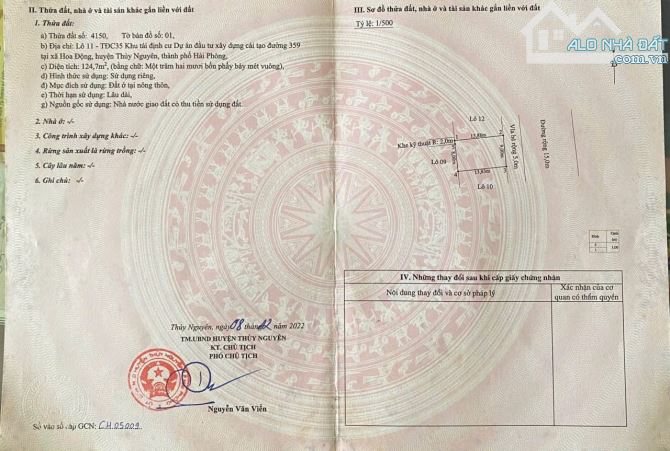 II. Thửa đất, nhà ở và tài sản khác gắn liền với đất
1. Thửa đất:
a) Thửa đất số: 4150, Tờ bản đồ số: 01,
b) Địa chỉ: Lô 11 - TĐC35 Khu tái định cư Dự án đầu tư xây dựng cải tạo đường 359
tại xã Hoa Động, huyện Thủy Nguyên, thành phố Hải Phòng,
c) Diện tích: 124,7m², (bằng chữ: Một trăm hai mươi bốn phẩy bảy mét vuông),
d) Hình thức sử dụng: Sử dụng riêng,
đ) Mục đích sử dụng: Đất ở tại nông thôn,
e) Thời hạn sử dụng: Lâu dài,
g) Nguồn gốc sử dụng: Nhà nước giao đất có thu tiền sử dụng đất.
2. Nhà ở: -/-
3. Công trình xây dựng khác: -/-
4. Rừng sản xuất là rừng trồng: -/-
5. Cây lâu năm: -/-
6. Ghi chú: -/-
Thủy Nguyên, ngày 08 tháng 12 2022
TM.UBND HUYỆN THỦY NGUYÊN
KT. CHỦ TỊCH
PHÓ CHỦ TỊCH
Nguyễn Văn Viển
Số vào sổ cấp GCN: CH.05009
III. Sơ đồ thửa đất, nhà ở và tài sản khác gắn liền với đất
Tỷ lệ: 1/500
ALO NHÀ ĐẤT
.com.vn
Lô 12
Khe kỹ thuật R: 2,0m
Lô 09
Lô 10
Vỉa hè rộng 5,0m
Đường rộng 15,0m
IV. Những thay đổi sau khi cấp giấy chứng nhận
Nội dung thay đổi và cơ sở pháp lý
Xác nhận của cơ
quan có thẩm quyền